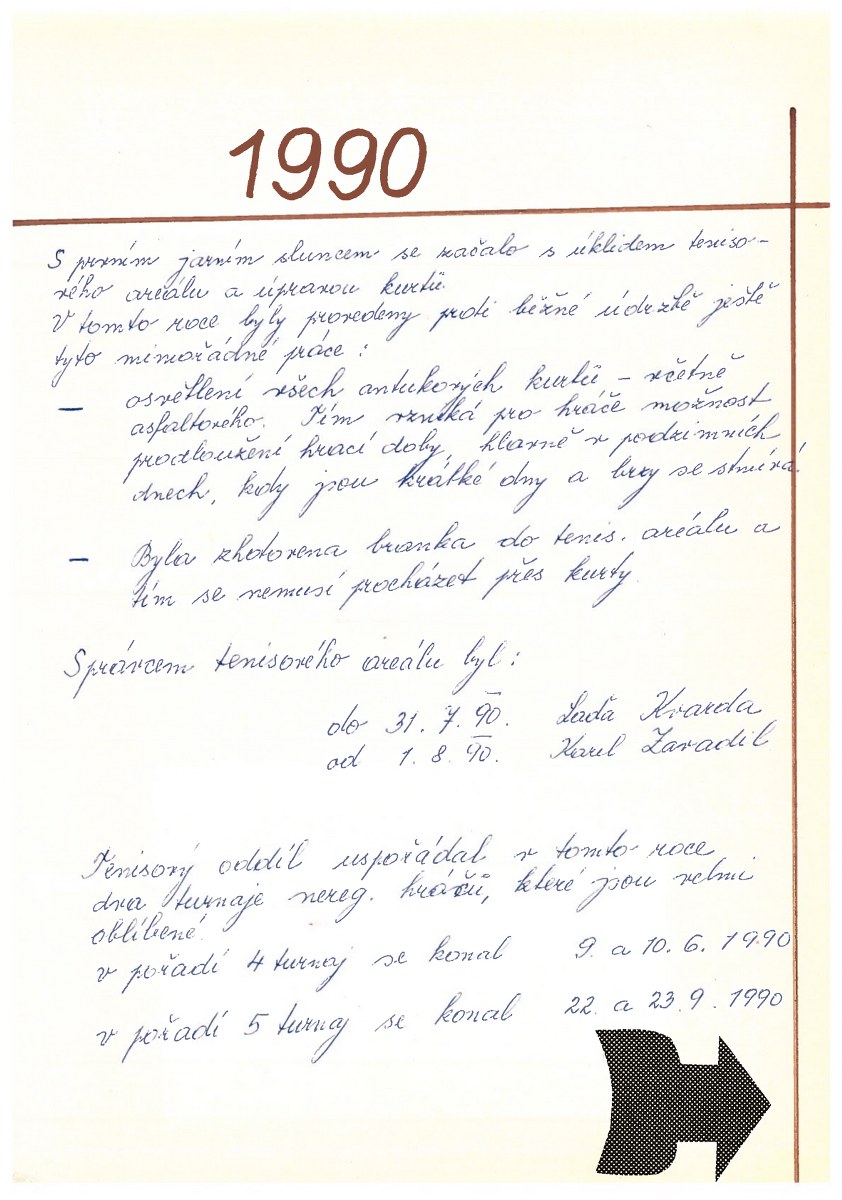 1990
S prvním jarním sluncem se začalo s úklidem teniso-
vého areálu a úpravou kurtů.
V tomto roce byly provedeny proti běžné údržbě ještě
tyto mimořádné práce :
– osvětlení všech antukových kurtů – včetně
asfaltového. Tím vzniká pro hráče možnost
prodloužení hrací doby, hlavně v podzimních
dnech, kdy jsou krátké dny a brzy se stmívá.
– Byla zhotovena branka do tenis. areálu a
tím se nemusí procházet přes kurty.
Správcem tenisového areálu byl :
do 31. 7. 90. Laďa Kvarda
od 1. 8. 90. Karel Zavadil
Tenisový oddíl uspořádal v tomto roce
dva turnaje nereg. hráčů, které jsou velmi
oblíbené.
v pořadí 4 turnaj se konal 9. a 10. 6. 1990
v pořadí 5 turnaj se konal 22. a 23. 9. 1990